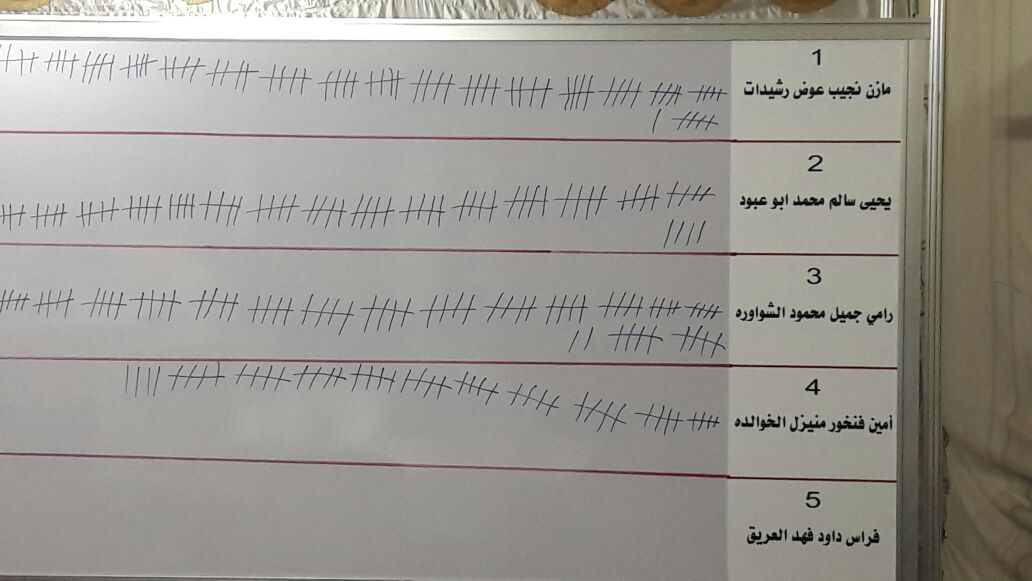 1
مازن نجيب عوض رشيدات
2
يحيى سالم محمد ابو عبود
3
رامي جميل محمود الشواوره
4
أمين فنخور منيزل الخوالده
5
فراس داود فهد العريق